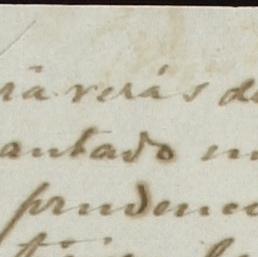 rá verás de
antado en
prudenc